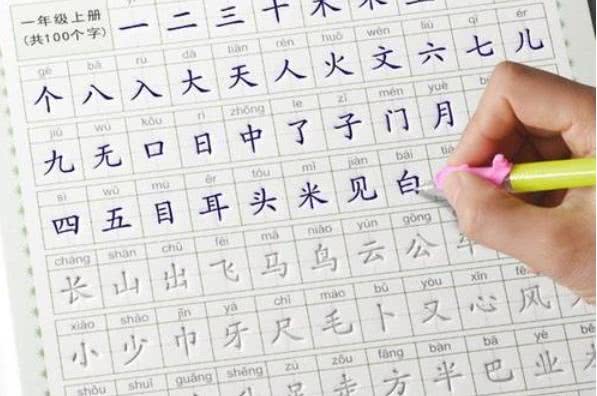 一年级上册 一 二 三 十 木 禾
(共100个字)
gè bā rù dà tiān rén huǒ wén liù qī ér
个 八 入 大 天 人 火 文 六 七 儿
jiǔ wú kǒu rì zhōng le zǐ mén yuè
九 无 口 日 中 了 子 门 月
sì wǔ mù ěr tóu mǐ jiàn bái
四 五 目 耳 头 米 见 白
cháng shān chū fēi mǎ niǎo yún gōng
长 山 出 飞 马 鸟 云 公 车
xiǎo shǎo jīn yá chǐ máo bǔ yòu xīn fēng
小 少 巾 牙 尺 毛 卜 又 心 风
shǒu shuǐ guǎng shēng zú zǒu fāng bàn bā yè
方 半 巴 业